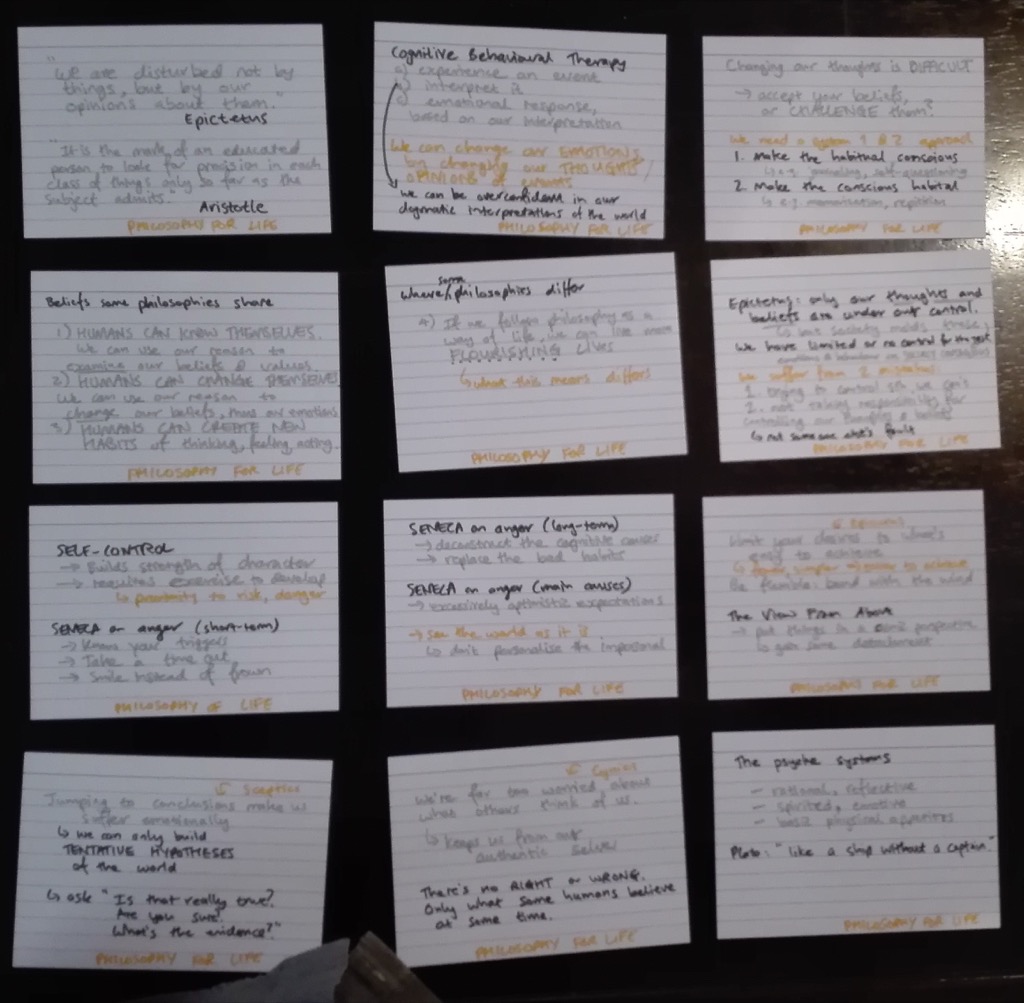 "We are disturbed not by
things, but by our
opinions about them."
Epictetus
"It is the mark of an educated
person to look for precision in each
class of things only so far as the
subject admits."
Aristotle
PHILOSOPHY FOR LIFE
Cognitive Behavioural Therapy
a) experience an event
b) interpret it
c) emotional response,
based on our interpretation
We can change our EMOTIONS
by changing our THOUGHTS/
OPINIONS of events
we can be overconfident in our
dogmatic interpretations of the world
PHILOSOPHY FOR LIFE
Changing our thoughts is DIFFICULT
→ accept your beliefs,
or CHALLENGE them?
We need a system 1 & 2 approach
1. Make the habitual conscious
↳ e.g. journaling, self-questioning
2. Make the conscious habitual
↳ e.g. memorisation, repetition
PHILOSOPHY FOR LIFE
Beliefs some philosophies share
1) HUMANS CAN KNOW THEMSELVES.
We can use our reason to
examine our beliefs & values.
2) HUMANS CAN CHANGE THEMSELVES
We can use our reason to
change our beliefs, thus our emotions
3) HUMANS CAN CREATE NEW
HABITS of thinking, feeling, acting.
PHILOSOPHY FOR LIFE
Where some philosophies differ
4) If we follow philosophy as a
way of life, we can live more
FLOURISHING LIVES
↳ what this means differs
PHILOSOPHY FOR LIFE
Epictetus: only our thoughts and
beliefs are under our control.
↳ but society molds these,
We have limited or no control for the rest
We suffer from 2 mistakes:
1. trying to control sth we can't
2. not taking responsibility for
controlling our thoughts & beliefs
↳ not someone else's fault
PHILOSOPHY FOR LIFE
SELF-CONTROL
→ Builds strength of character
→ requires exercise to develop
↳ proximity to risk, danger
SENECA on anger (short-term)
→ Know your triggers
→ Take a time out
→ Smile instead of frown
PHILOSOPHY OF LIFE
SENECA on anger (long-term)
→ deconstruct the cognitive causes
→ replace the bad habits
SENECA on anger (main causes)
→ excessively optimistic expectations
→ see the world as it is
↳ don't personalise the impersonal
PHILOSOPHY FOR LIFE
Limit your desires to what's
easy to achieve
↳ fewer, simpler to achieve
Be flexible: bend with the wind
The View From Above
→ put things in a cosmic perspective
↳ gain some detachment
PHILOSOPHY FOR LIFE
↳ Sceptics
Jumping to conclusions make us
suffer emotionally
↳ we can only build
TENTATIVE HYPOTHESES
of the world
↳ ask "Is that really true?
Are you sure?
What's the evidence?"
PHILOSOPHY FOR LIFE
↳ Cynics
We're far too worried about
what others think of us.
↳ keeps us from our
authentic selves
There's no RIGHT or WRONG.
Only what some humans believe
at some time.
PHILOSOPHY FOR LIFE
The psyche systems
- rational, reflective
- spirited, emotive
- basic physical appetites
Plato: "like a ship without a captain"
PHILOSOPHY FOR LIFE